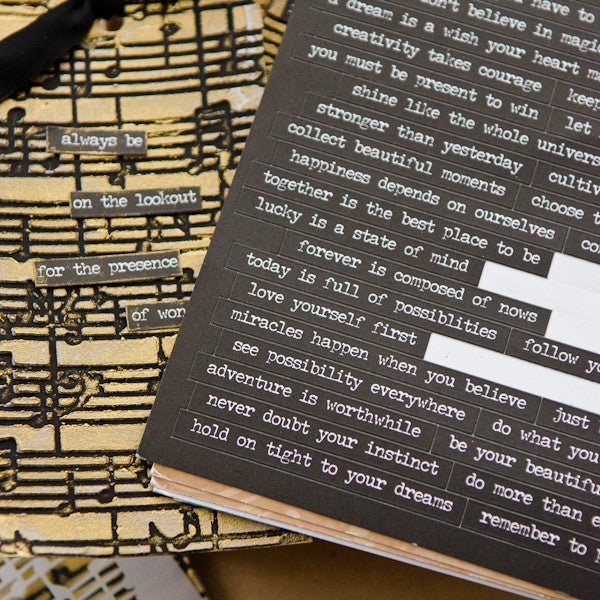 always be
on the lookout
for the presence
of won
have to
don't believe in magic
a dream is a wish your heart ma
creativity takes courage keep
you must be present to win let
shine like the whole univers
stronger than yesterday cultiv
collect beautiful moments choose t
happiness depends on ourselves
together is the best place to be
lucky is a state of mind
forever is composed of nows
today is full of possiblities follow yo
love yourself first
miracles happen when you believe just
see possibility everywhere do what you
adventure is worthwhile be your beautiful
never doubt your instinct do more than e
hold on tight to your dreams remember to